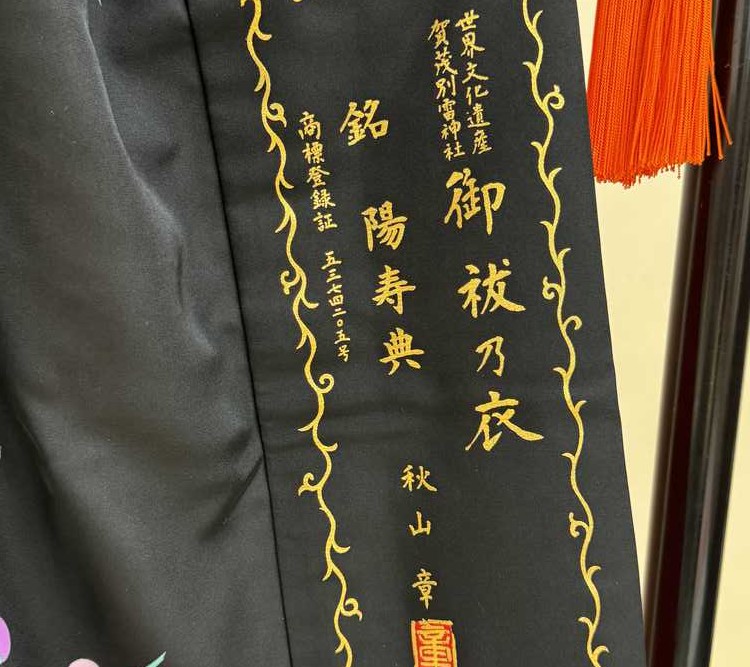 世界文化遺産
賀茂別雷神社
御祓乃衣
銘 陽寿典
商標登録証 五三七四二〇五号
秋山 章
章